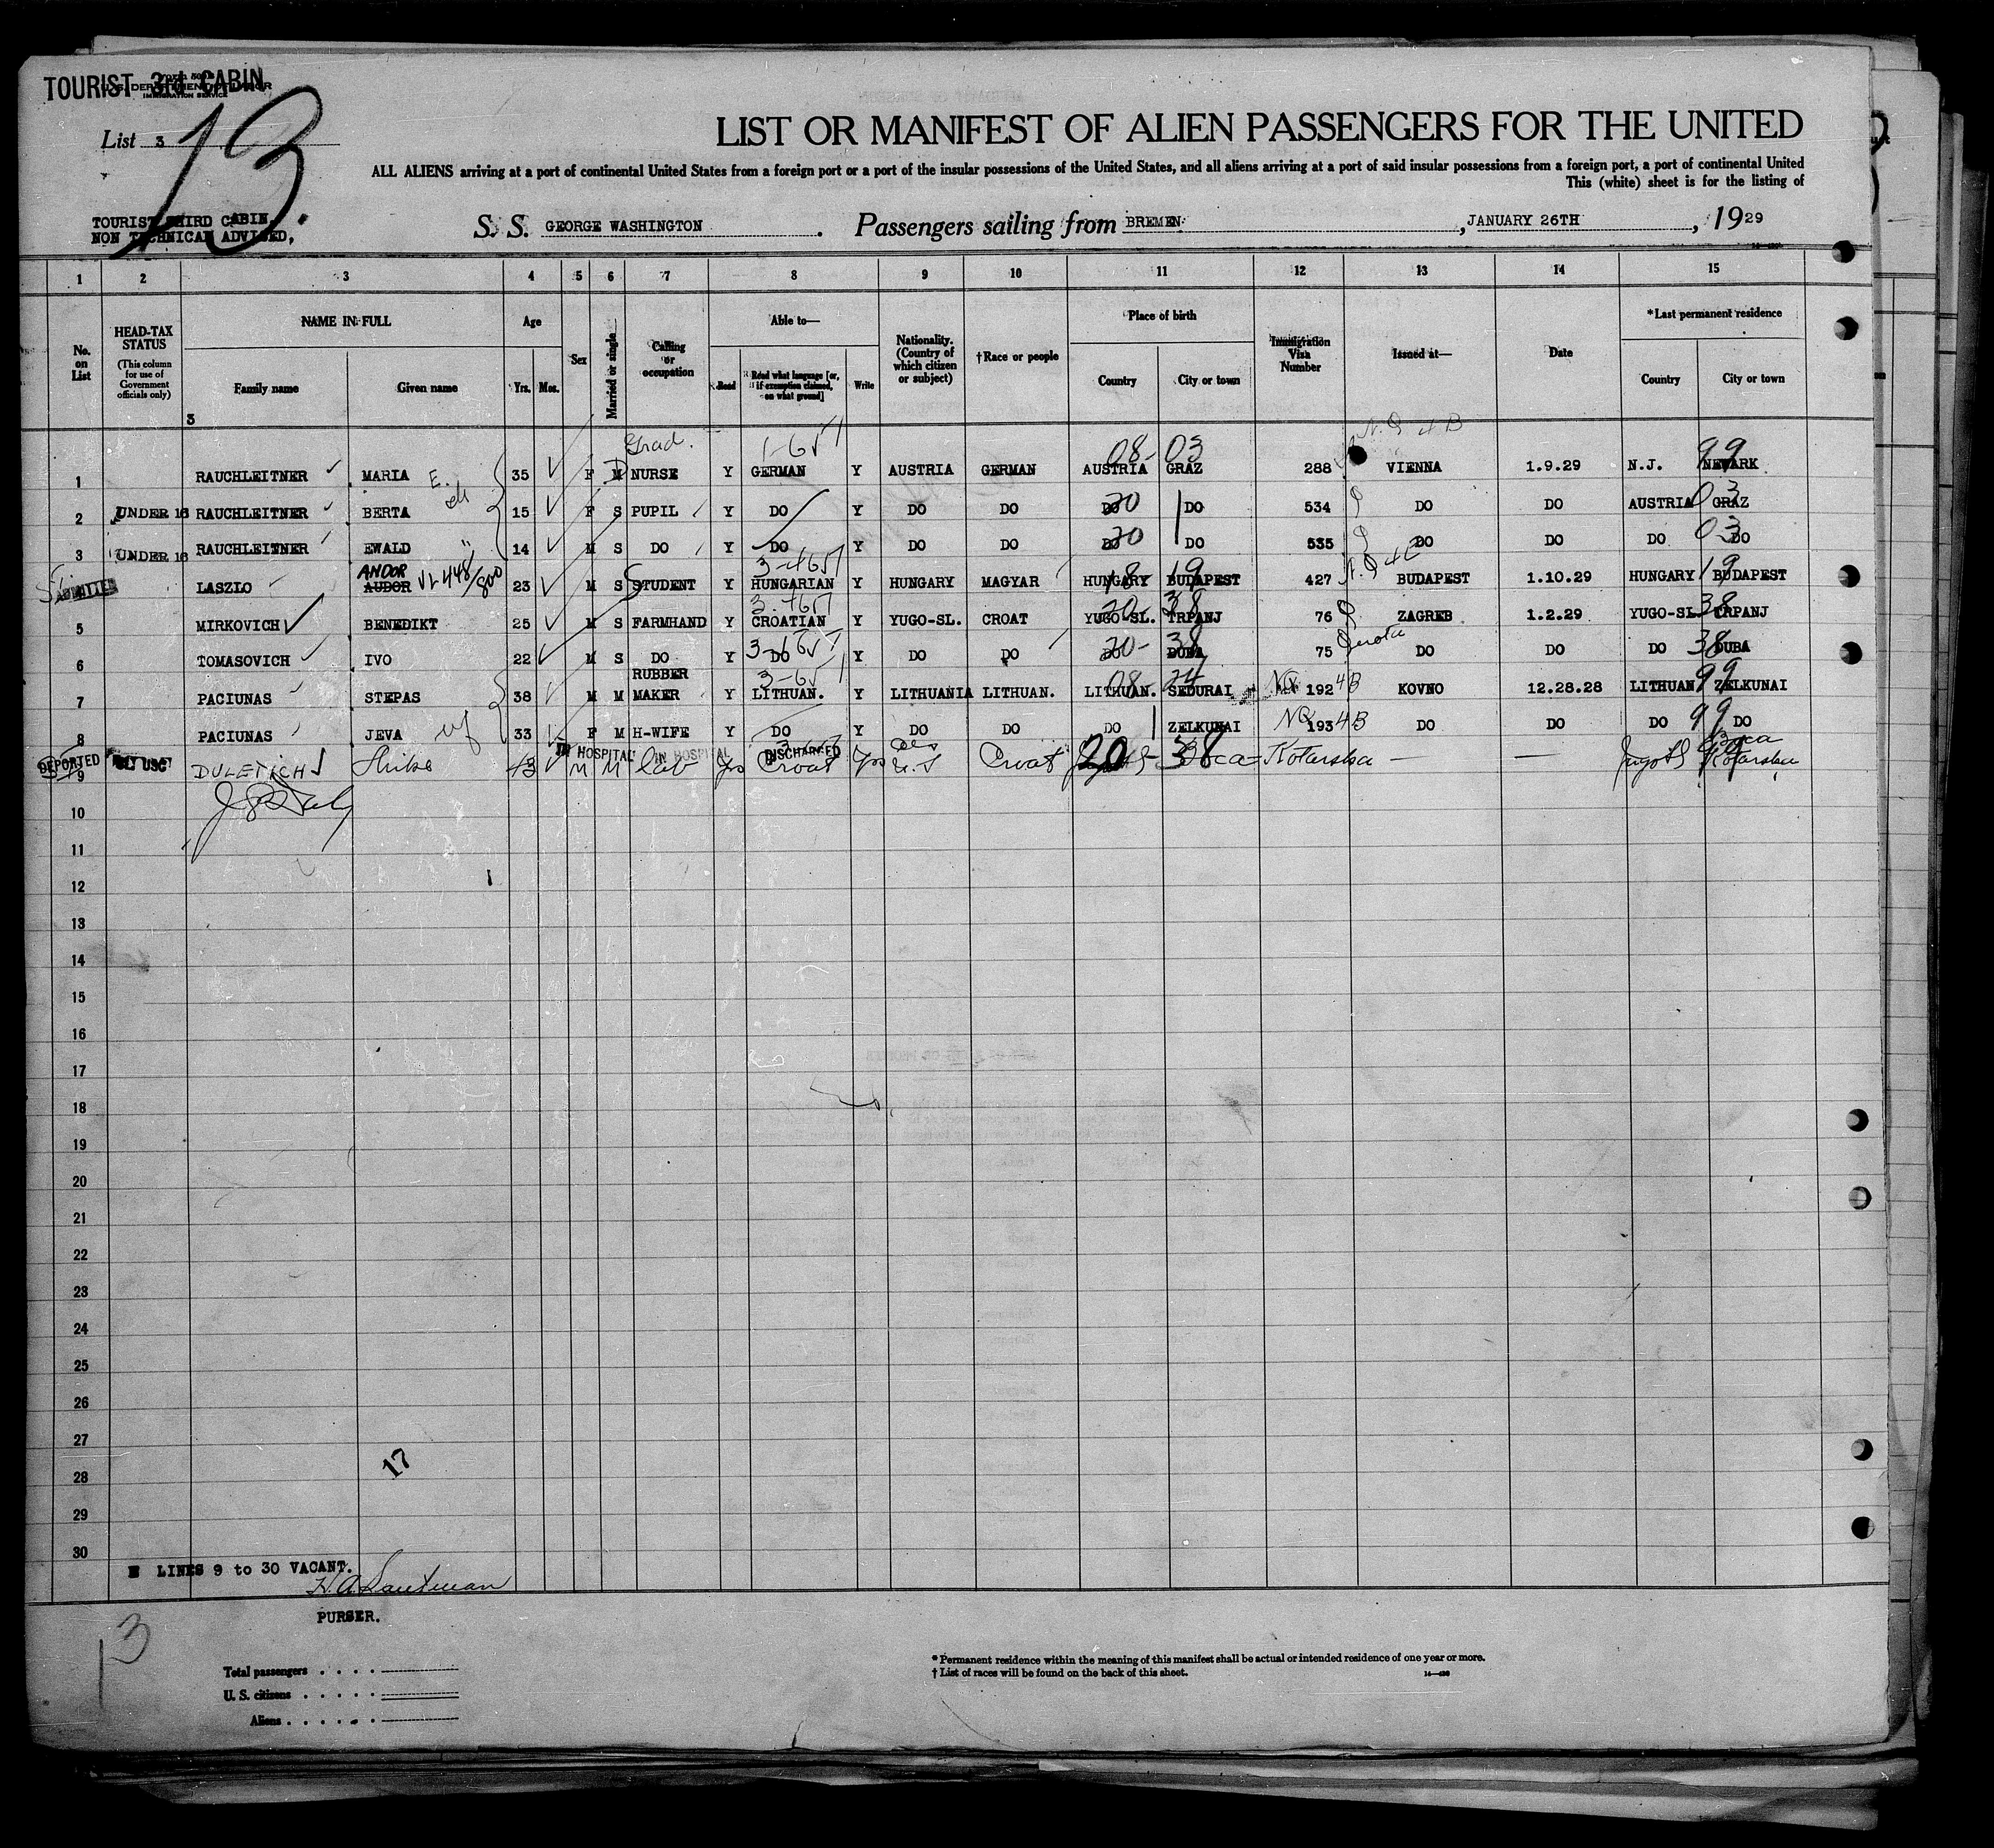 TOURIST 3rd CABIN
U. S. DEPARTMENT OF LABOR
IMMIGRATION SERVICE
List 3
13.
LIST OR MANIFEST OF ALIEN PASSENGERS FOR THE UNITED
ALL ALIENS arriving at a port of continental United States from a foreign port or a port of the insular possessions of the United States, and all aliens arriving at a port of said insular possessions from a foreign port, a port of continental United
This (white) sheet is for the listing of
TOURIST THIRD CABIN
NON TECHNICAL ADVISED,
S. S. GEORGE WASHINGTON. Passengers sailing from BREMEN, JANUARY 26TH, 1929
1 2 3 4 5 6 7 8 9 10 11 12 13 14 15
No. on List
HEAD-TAX STATUS (This column for use of Government officials only)
NAME IN FULL
Family name
Given name
Age
Yrs. Mos.
Sex
Married or single
Calling or occupation
Able to—
Read
Read what language [or, if exemption claimed, on what ground]
Write
Nationality. (Country of which citizen or subject)
†Race or people
Place of birth
Country
City or town
Immigration Visa Number
Issued at—
Date
*Last permanent residence
Country
City or town
3
Grad. 08-03 N.Q 4B 99
1 RAUCHLEITNER MARIA E. 35 F M NURSE Y GERMAN Y AUSTRIA GERMAN AUSTRIA GRAZ 288 VIENNA 1.9.29 N.J. NEWARK
2 UNDER 16 RAUCHLEITNER BERTA 15 F S PUPIL Y DO Y DO DO DO 20 DO 534 DO DO AUSTRIA 03 GRAZ
3 UNDER 16 RAUCHLEITNER EWALD " 14 M S DO Y DO Y DO DO DO 20 DO 535 DO DO DO 03 DO
ADMITTED LASZLO ANDOR AUDOR VL 448/800 23 M S STUDENT Y HUNGARIAN Y HUNGARY MAGYAR HUNGARY 18-19 BUDAPEST 427 BUDAPEST 1.10.29 HUNGARY 19 BUDAPEST
5 MIRKOVICH BENEDIKT 25 M S FARMHAND Y CROATIAN Y YUGO-SL. CROAT YUGO-SL. 20-38 TRPANJ 76 ZAGREB 1.2.29 YUGO-SL 38 TRPANJ
6 TOMASOVICH IVO 22 M S DO Y DO Y DO DO DO 20-38 DUBA 75 Quota DO DO DO 38 DUBA
7 PACIUNAS STEPAS 38 M M RUBBER MAKER Y LITHUAN. Y LITHUANIA LITHUAN. LITHUAN. 08-24 SEDURAI NQ 192 4B KOVNO 12.28.28 LITHUAN 99 ZELKUNAI
8 PACIUNAS JEVA wf 33 F M H-WIFE Y DO Y DO DO DO ZELKUNAI NQ 193 4B DO DO DO 99 DO
IN HOSPITAL IN HOSPITAL DISCHARGED
DEPORTED
9 DULETICH 43 M M Lab Yes Croat Yes Croat 20-38 Boca=Kotarska — — Boca Kotarska
10
11
12
13
14
15
16
17
18
19
20
21
22
23
24
25
26
27
17
28
29
30
LINES 9 to 30 VACANT.
PURSER.
13
Total passengers
U. S. citizens
Aliens
* Permanent residence within the meaning of this manifest shall be actual or intended residence of one year or more.
† List of races will be found on the back of this sheet.